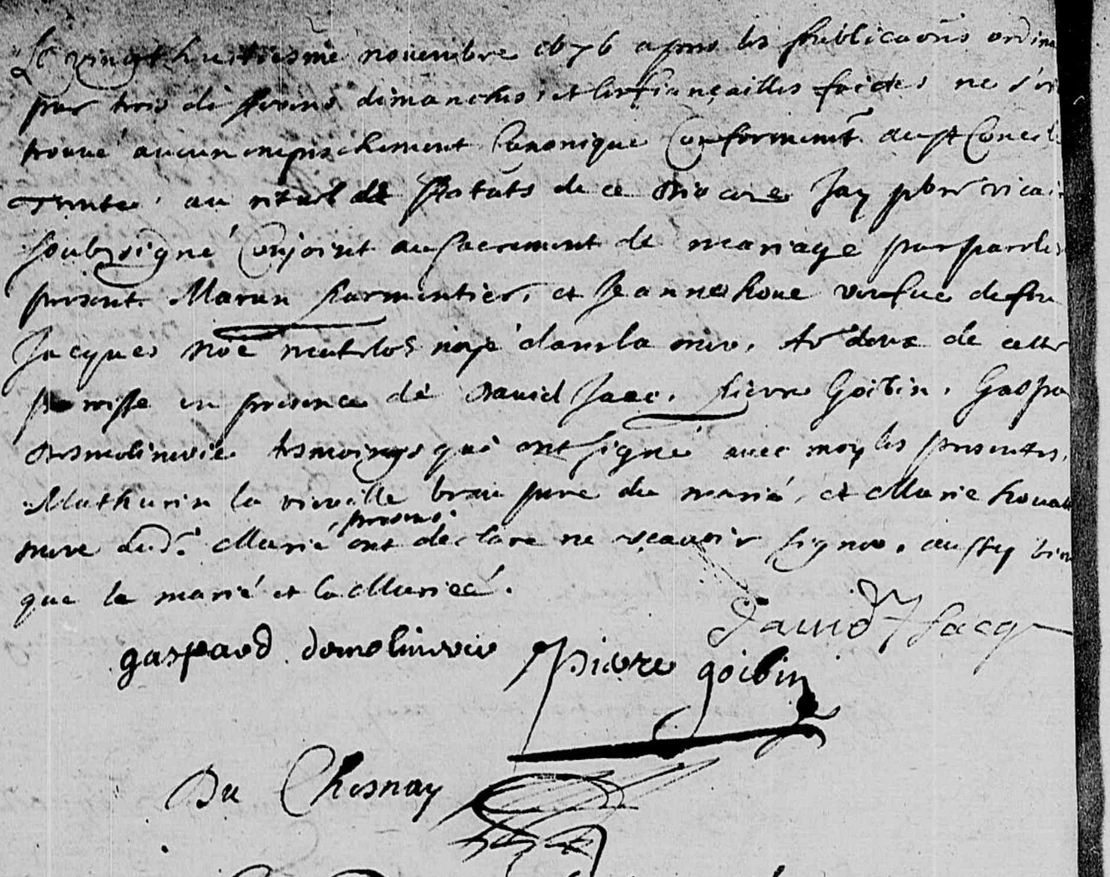 Le vingt huitiesme novembre 1676 apres les publicaõns ordin
par trois divers dimanches, et les fiançailles faictes ne s'
trouvé aucun empeschement Canonique Conformemt au st Concil
Trente, au rituel et statuts de ce diocese Jay pbre vicai
soubsigné Conjoint au sacrement de mariage par parolles
present Marin Parmentier, et Jeanne houe veufue de feu
Jacques Noé matelot noyé dans la mer, ts deux de cette
paroisse en presence de David Jacq, Pierre Goibin, Gaspa
tesmoings qui ont signé avec moy les presentes,
Mathurin la vieuille beau pere du marié, et Marie
mere dud. Marié presens ont declaré ne scavoir signer, aussy bien
que le marié et la Mariée.
David Jacq
gaspard pierre goibin
Du Chesnay